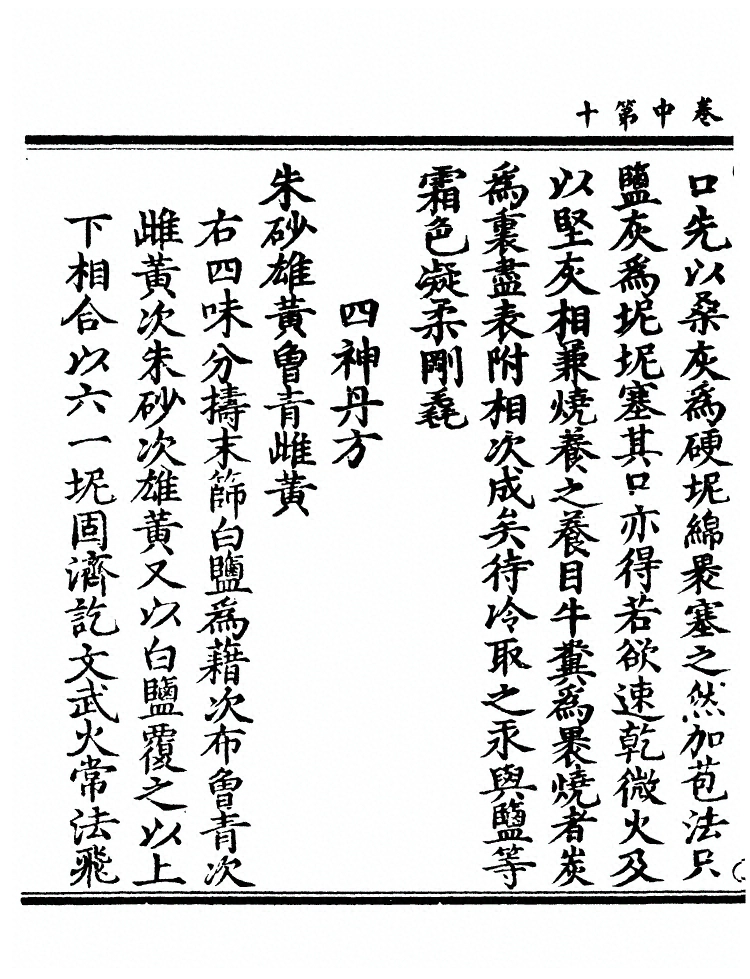 卷中第十
口先以桑灰為硬坭綿褁塞之然加苞法只
鹽灰為坭坭塞其口亦得若欲速乾微火及
以堅灰相兼燒養之養目牛糞為褁燒者炭
為裏盡表附相次成矣待冷取之汞與鹽等
霜色凝柔剛毳
四神丹方
朱砂雄黃曾青雌黃
右四味分擣末篩白鹽為藉次布曾青次
雌黃次朱砂次雄黃又以白鹽覆之以上
下相合以六一坭固濟訖文武火常法飛